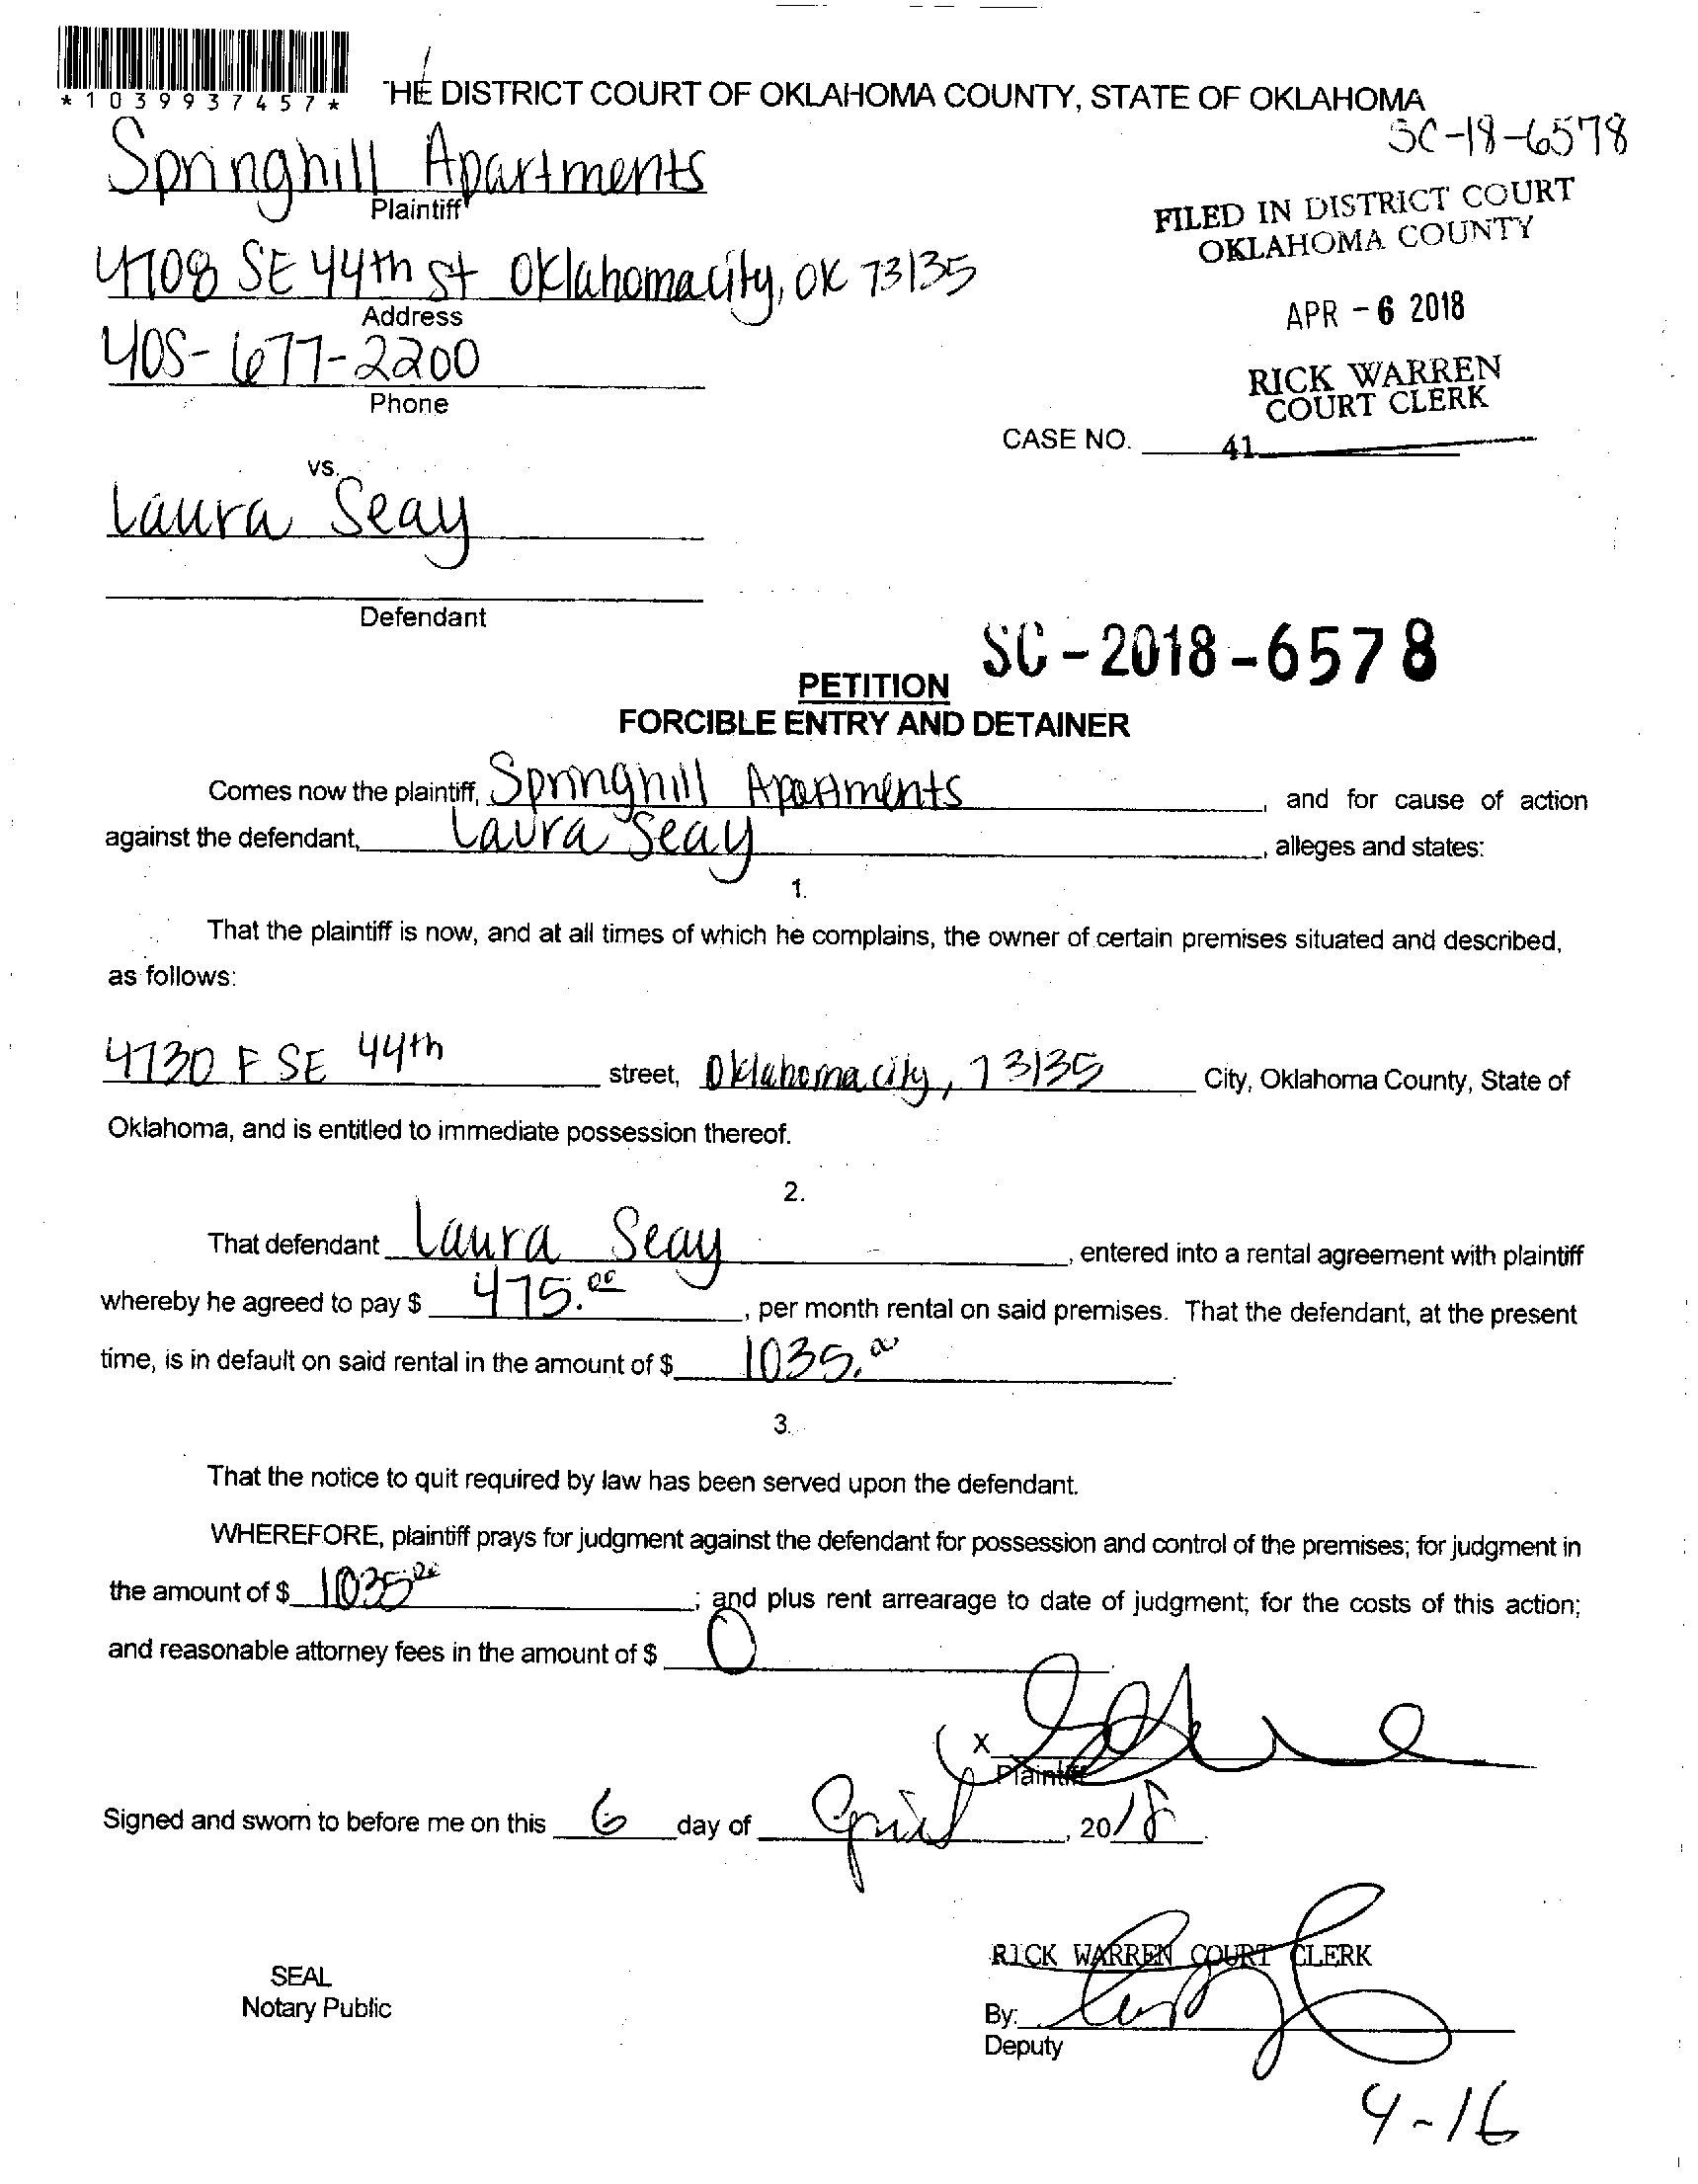 *1039937457*
THE DISTRICT COURT OF OKLAHOMA COUNTY, STATE OF OKLAHOMA
SC-18-6578
Springhill Apartments
Plaintiff
FILED IN DISTRICT COURT
OKLAHOMA COUNTY
4708 SE 44th St Oklahoma City, OK 73135
Address
APR - 6 2018
405-677-2200
Phone
RICK WARREN
COURT CLERK
CASE NO. 41
vs.
Laura Seay
Defendant
SC - 2018 - 6578
PETITION
FORCIBLE ENTRY AND DETAINER
Comes now the plaintiff, Springhill Apartments, and for cause of action
against the defendant, Laura Seay, alleges and states:
1.
That the plaintiff is now, and at all times of which he complains, the owner of certain premises situated and described,
as follows:
4730 F SE 44th street, Oklahoma City, 73135 City, Oklahoma County, State of
Oklahoma, and is entitled to immediate possession thereof.
2.
That defendant Laura Seay, entered into a rental agreement with plaintiff
whereby he agreed to pay $ 475.00, per month rental on said premises. That the defendant, at the present
time, is in default on said rental in the amount of $ 1035.00.
3.
That the notice to quit required by law has been served upon the defendant.
WHEREFORE, plaintiff prays for judgment against the defendant for possession and control of the premises; for judgment in
the amount of $ 1035.00; and plus rent arrearage to date of judgment; for the costs of this action;
and reasonable attorney fees in the amount of $ 0
X
Plaintiff
Signed and sworn to before me on this 6 day of April, 2018.
RICK WARREN COURT CLERK
SEAL
Notary Public
By:
Deputy
4-16